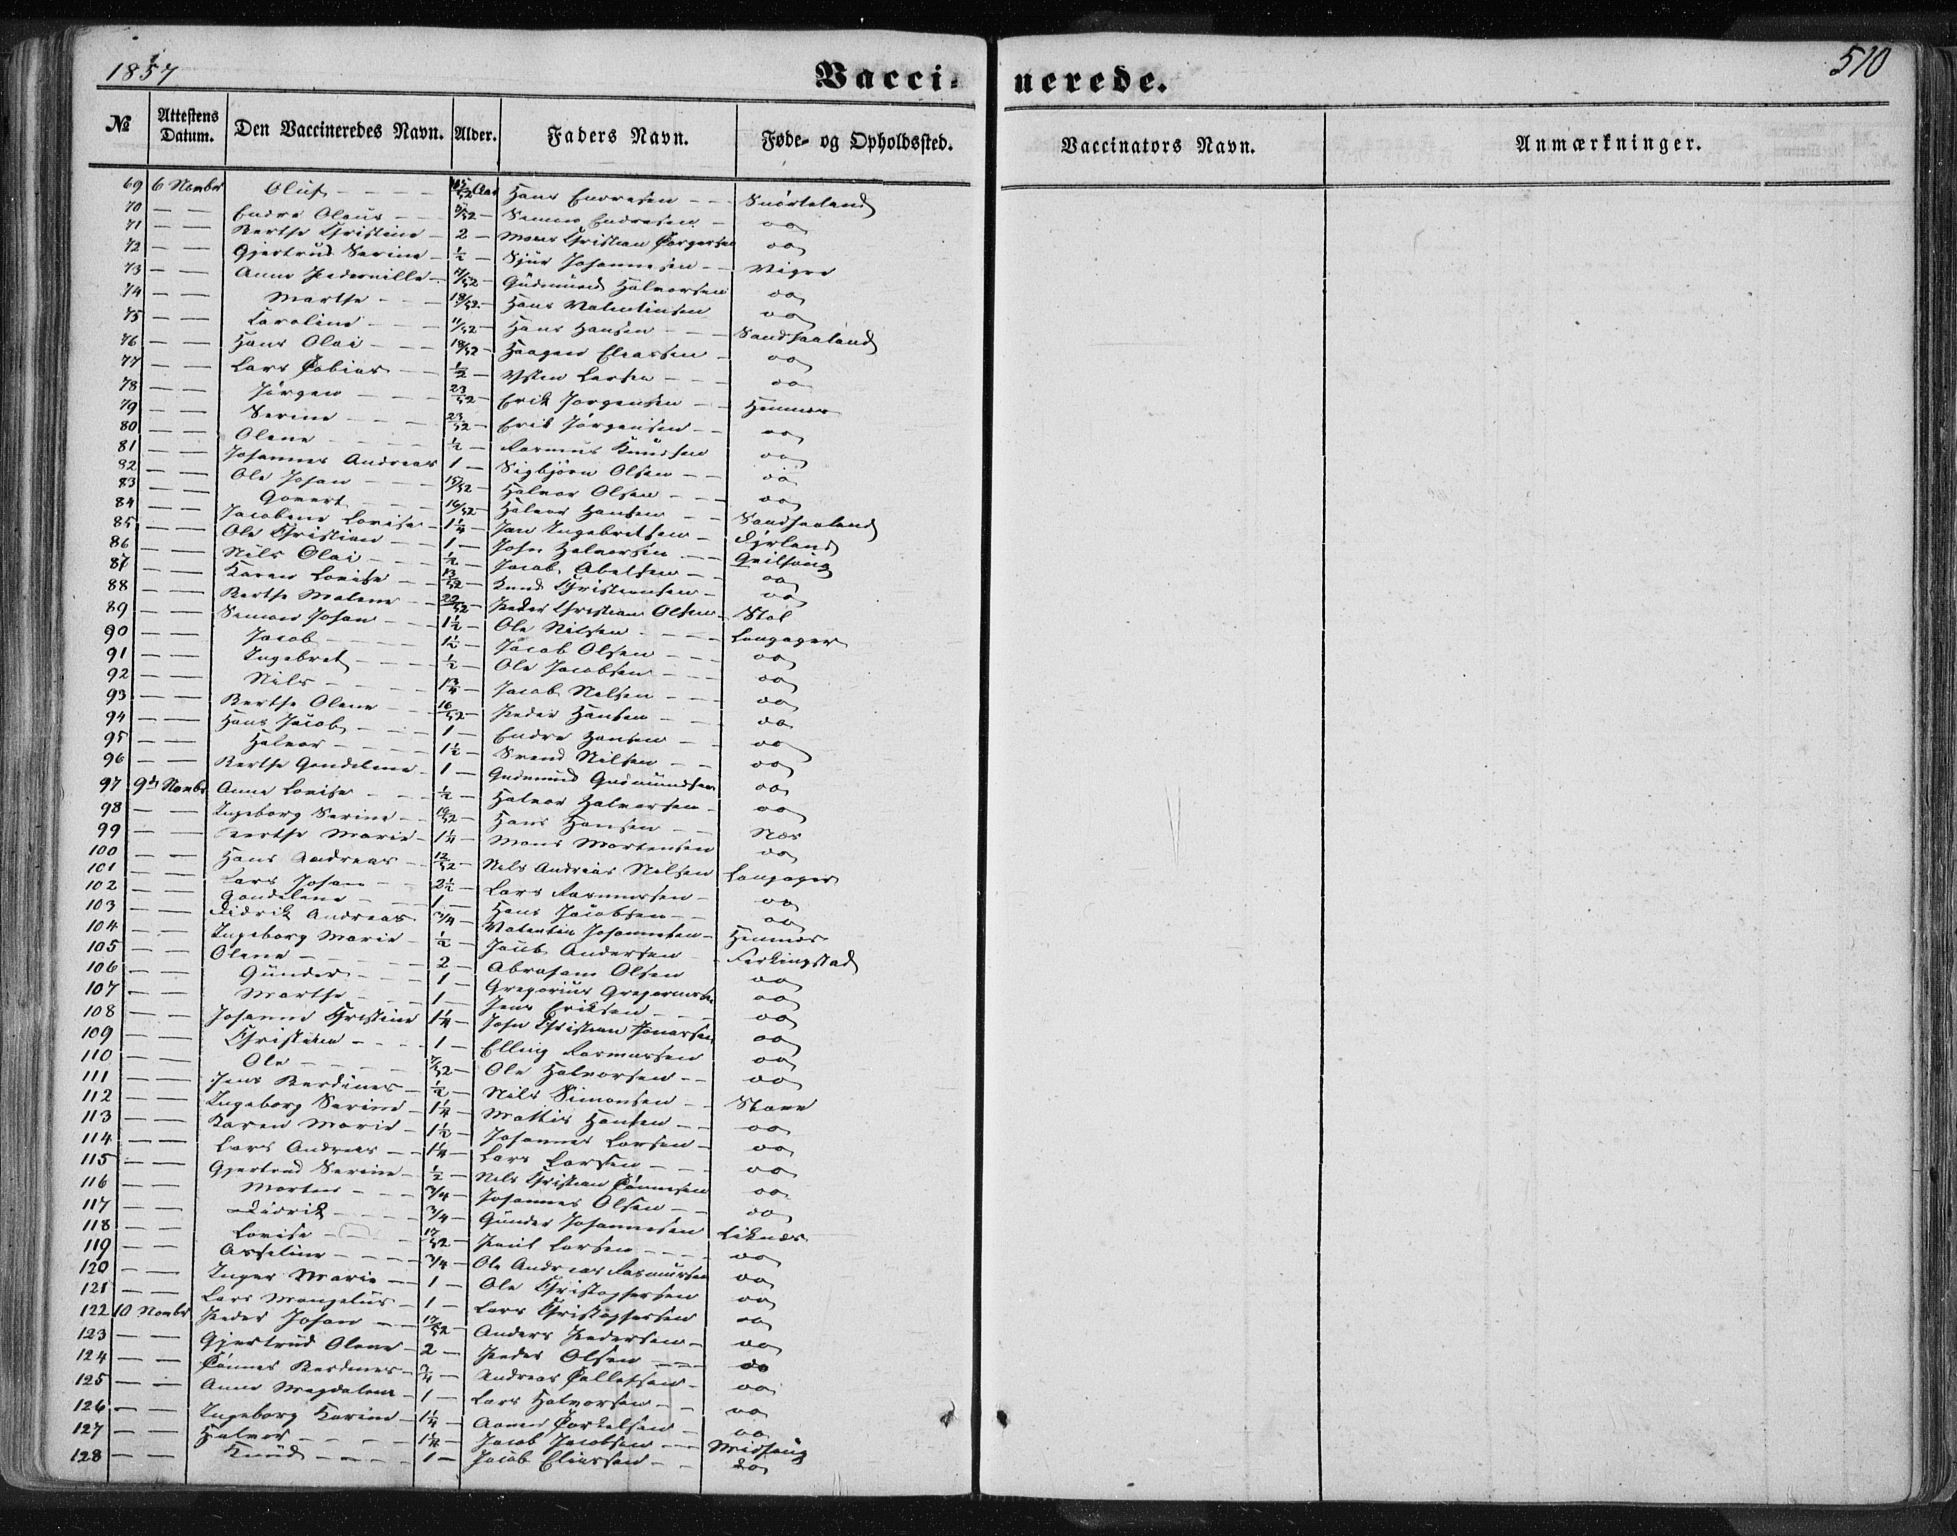 1857
Vacci- nerede.
510
№ Attestens Datum. Den Vaccineredes Navn. Alder. Faders Navn. Føde- og Opholdssted. Vaccinators Navn. Anmærkninger.
69 6 Novbr Oluf - - - - Aar Hans Endresen - - Snørteland
70 — — Endre Olaus - - 5/52 — Simon Endresen - do
71 — — Berthe Christine - 2 — Mons Christian Torgersen do
72 — — Gjertrud Serine - ½ — Sjur Johannesen - - Vigre
73 — — Anne Pedernille - 11/52 — Gudmund Halvorsen do
74 — — Marthe - - - 18/52 — Hans Valentinsen do
75 — — Caroline - - - 11/52 — Hans Hansen - - - Sandhaaland
76 — — Hans Olai - - - 18/52 — Haagen Eliassen - do
77 — — Lars Tobias - - ½ — Østen Larsen - - - do
78 — — Jørgen - - - - 23/52 — Erik Jørgensen - - Hemnes
79 — — Serine - - - - 23/52 — Erik Jørgensen - - do
80 — — Olene - - - - ½ — Rasmus Knudsen do
81 — — Johannes Andreas 1 — Sigbjørn Olsen - - do
82 — — Ole Johan - - - 15/52 — Halvor Olsen - - - do
83 — — Govert - - - 16/52 — Halvor Hansen - - Sandhaaland
84 — — Jacobine Lovise - 1¼ — Jan Ingebretsen -
85 — — Ole Christian - - 1 — John Halvorsen - - Qvilhaug
86 — — Nils Olai - - - ½ — Jacob Abelsen - - do
87 — — Karen Lovise - - 13/52 — Knud Christiansen - - do
88 — — Berthe Malene - - 22/52 — Peder Christian Olsen - Stol
89 — — Simon Johan - - 1½ — Ole Nilsen - - - - Langager
90 — — Jacob - - - - 1½ — Jacob Olsen - - - do
91 — — Ingebret - - - ½ — Ole Jacobsen - - - do
92 — — Nils - - - - — Jacob Nilsen - - - do
93 — — Berthe Olene - - 16/52 — Peder Hansen - - - do
94 — — Hans Jacob - - - 1 — Endre Hansen - - do
95 — — Halvor - - - - 1½ — Svend Nilsen - - do
96 — — Berthe Gondeline - 1 — Gudmund Gudmundsen do
97 9de Novbr Anne Lovise - - ½ — Halvor Halvorsen - do
98 — — Ingeborg Serine - - — Hans Hansen - - Næs
99 — — Berthe Marie - 1¼ — Mons Mortensen do
100 — — Hans Andreas - - 12/52 — Nils Andreas Nilsen Langager
101 — — Lars Johan - - 2½ — Lars Rasmussen - do
102 — — Gondeline - - - 1 — Hans Jacobsen - - do
103 — — Didrik Andreas 3/4 — Valentin Johannesen - Hemnes
104 — — Ingeborg Marie - ½ — Jacob Andersen - Ferkingstad
105 — — Olene - - - - 2 — Abraham Olsen do
106 — — Gunder - - - 1 — Gregorius Gregoriussen do
107 — — Marthe - - - 1 — Jens Eriksen - - - do
108 — — Johanne Christine 1¼ — John Christian Jonassen do
109 — — Christine - - - - 1 — Elling Rasmussen do
110 — — Ole - - - - 7/52 — Ole Halvorsen - - do
111 — — Jens Berdines - ½ — Nils Simonsen - - Stave
112 — — Ingeborg Serine - 1¼ — Mattis Hansen - - do
113 — — Karen Marie - 1½ — Johannes Larsen - do
114 — — Lars Andreas - - 1¼ — Lars Larsen - - - do
115 — — Gjertrud Serine - ½ — Nils Christian Tønnesen do
116 — — Morten - - - 3/4 — Johannes Olsen - - do
117 — — Didrik - - - - 3/4 — Gunder Johannesen Liknæs
118 — — Lovise - - - 17/52 — Poul Larsen - - - - do
119 — — Asseline - - - - 3/4 — Ole Andreas Rasmussen do
120 — — Inger Marie - - 1 — Ole Christophersen do
121 — — Lars Mangelus - 1 — Lars Christophersen do
122 10 Novbr Peder Johan - - 17/52 — Anders Pedersen - do
123 — — Gjertrud Olene - 2 — Peder Olsen - - - do
124 — — Tønnes Berdines - 3/4 — Andreas Tollefsen - do
125 — — Anne Magdalene - 1 — Lars Halvorsen - - do
126 — — Ingeborg Karine - 1¼ — Aanen Torkelsen - do
127 — — Halvor - - - - 1¼ — Jacob Jacobsen - - - Midhaug
128 — — Knud - - - - 1 — Jacob Eliassen - - do